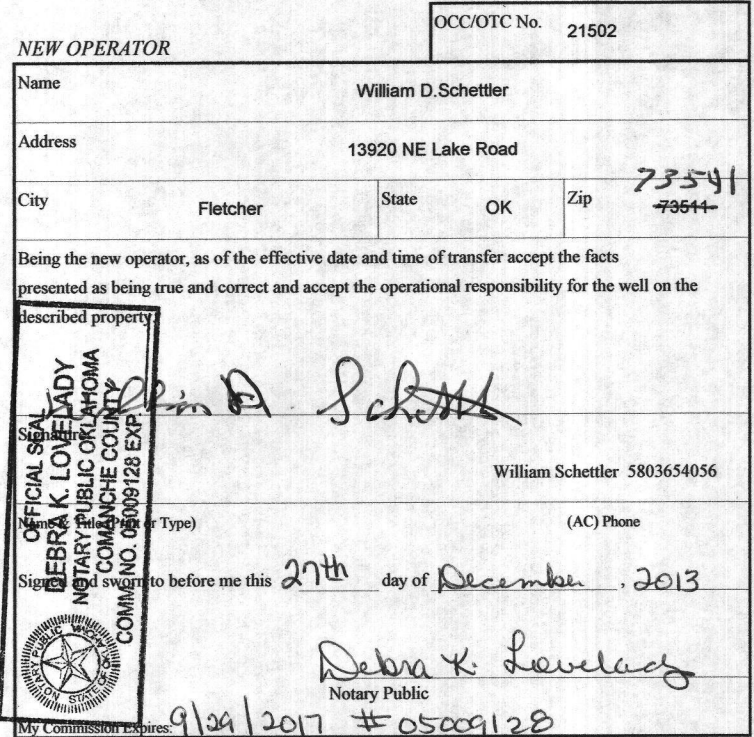 OCC/OTC No. 21502
NEW OPERATOR
Name William D.Schettler
Address 13920 NE Lake Road
City Fletcher State OK Zip 73541 73511
Being the new operator, as of the effective date and time of transfer accept the facts
presented as being true and correct and accept the operational responsibility for the well on the
described property
William D. Schettler
Signature
William Schettler 5803654056
Name & Title (Print or Type) (AC) Phone
Signed and sworn to before me this 27th day of December, 2013
Debra K. Lovelady
Notary Public
My Commission Expires: 9/29/2017 #05009128
OFFICIAL SEAL
DEBRA K. LOVELADY
NOTARY PUBLIC OKLAHOMA
COMANCHE COUNTY
COMM. NO. 05009128 EXP
NOTARY PUBLIC
STATE OF OKLAHOMA